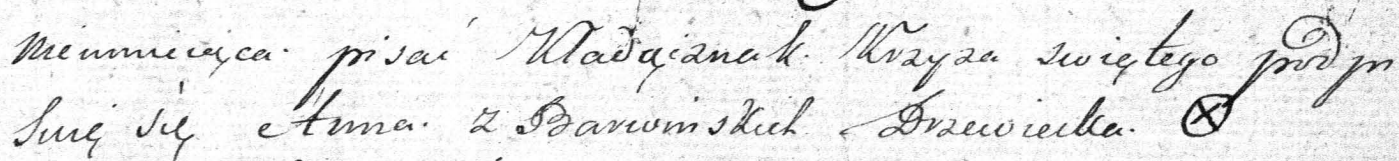 nieumieiąca pisać Kładąc znak Krzyża swiętego podpi
suię się Anna z Barwinskich Drzewiecka